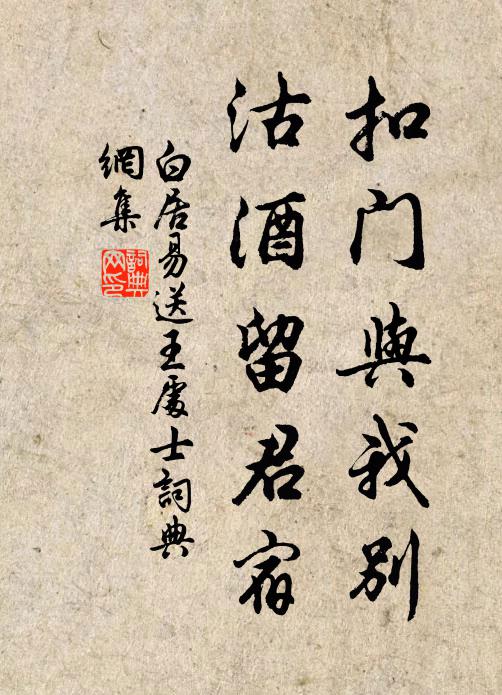 扣门與我别
沽酒留君宿
白居易送王處士詞典
網集
詞典网印